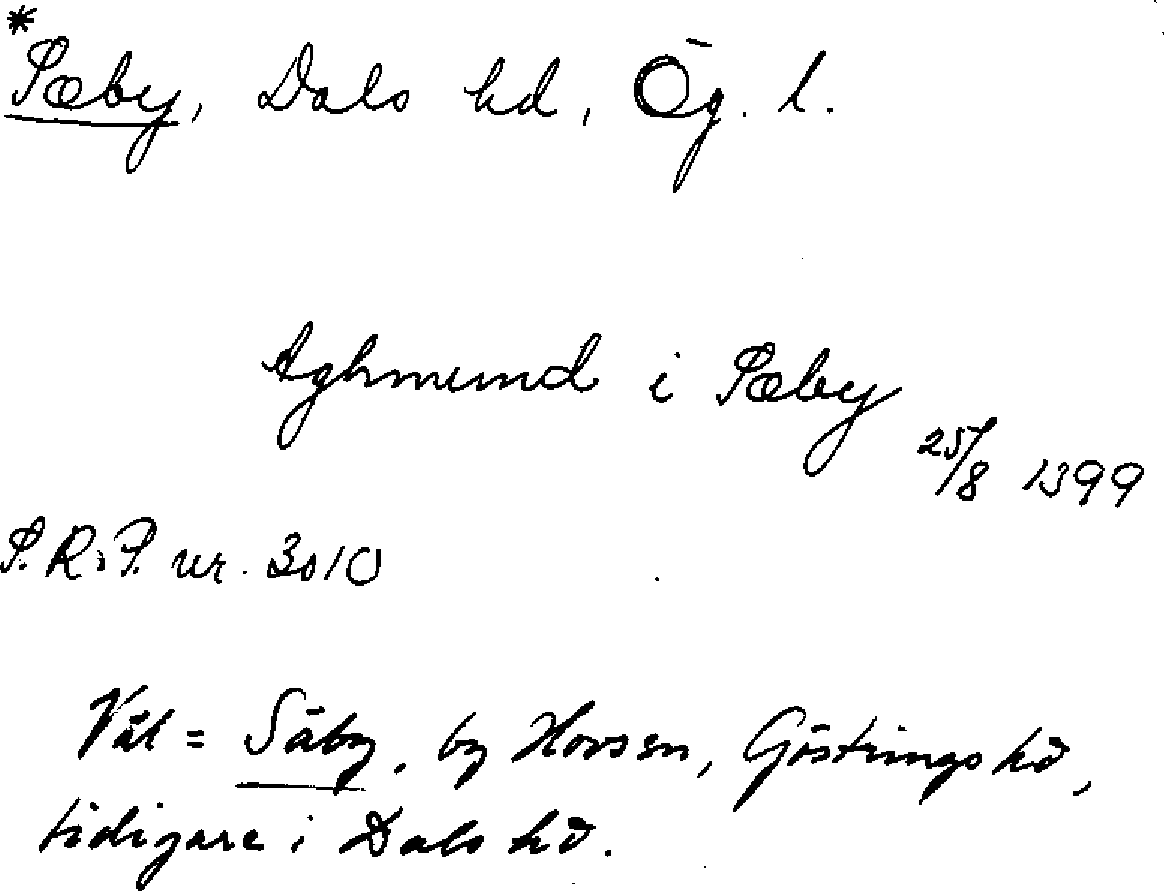 *
Sæby, Dals hd, Ög. l.
Aghmund i Sæby
25/8 1399
S.R.P. nr. 3010
Väl = Säby, by Hovs sn, Göstrings hd,
tidigare i Dals hd.